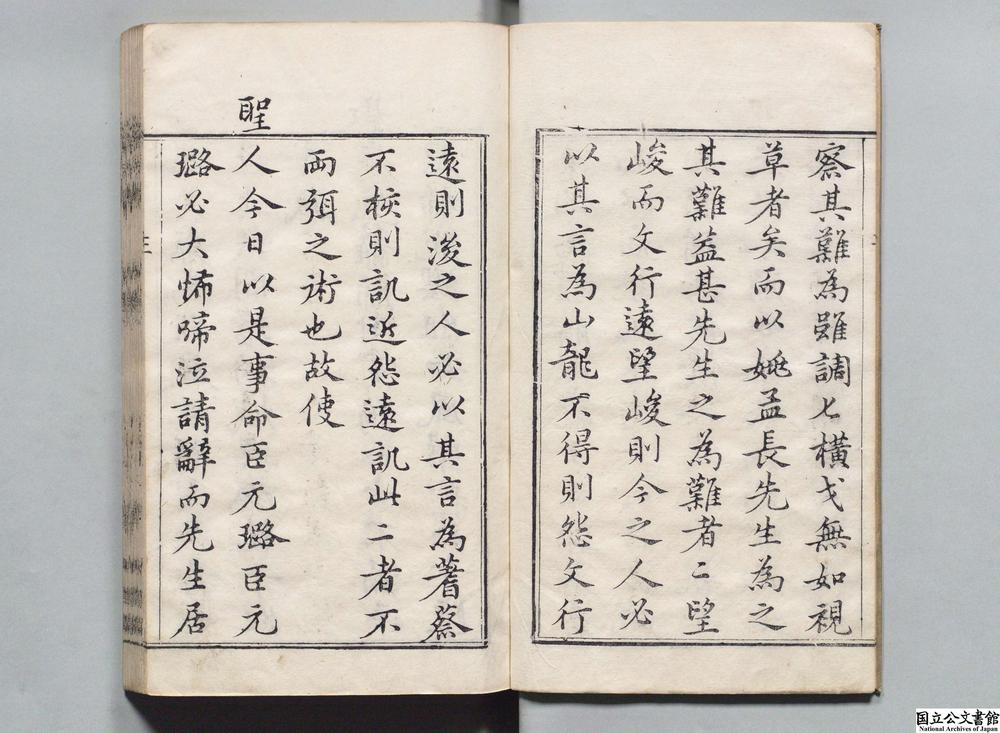 察其難為雖調七橫戈無如視
草者矣而以姚孟長先生為之
其難益甚先生之為難者二望
峻而文行遠望峻則今之人必
以其言為山龍不得則怨文行
遠則後之人必以其言為蓍蔡
不核則訊近怨遠訊此二者不
兩弭之術也故使
聖
人今日以是事命臣元璐臣元
璐必大怖啼泣請辭而先生居
国立公文書館
National Archives of Japan